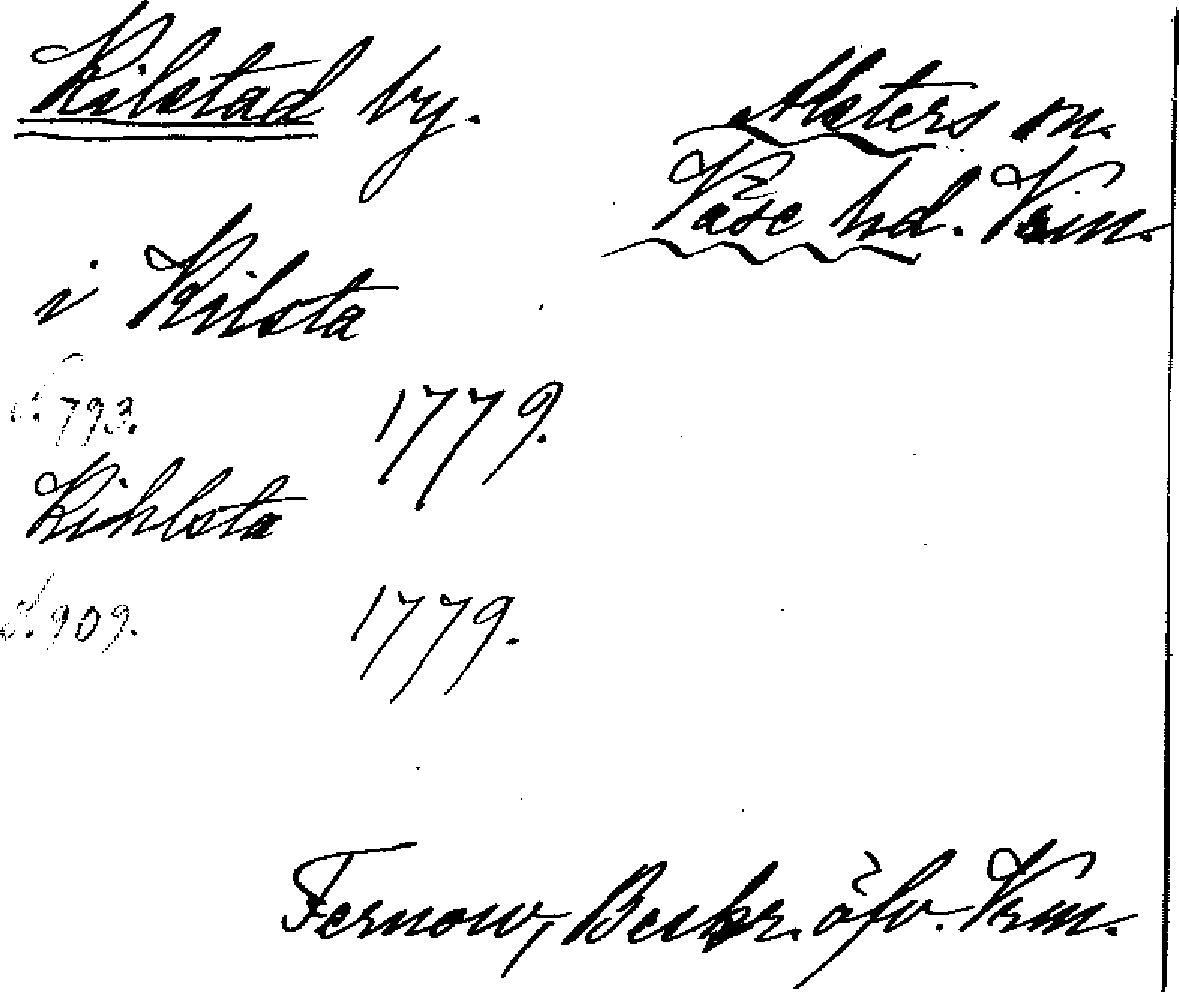 Kilstad by.
Alsters sn.
Väse hd. Vrm.
i Kilsta
S. 793. 1779.
Kihlsta
S. 909. 1779.
Fernow, Beskr. öfv. Vrm.